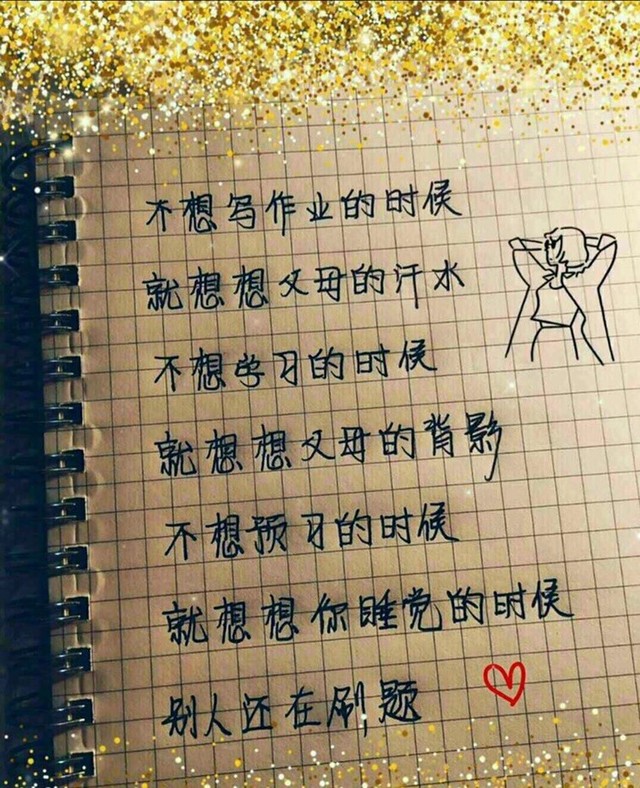 不想写作业的时候
就想想父母的汗水
不想学习的时候
就想想父母的背影
不想预习的时候
就想想你睡觉的时候
别人还在刷题